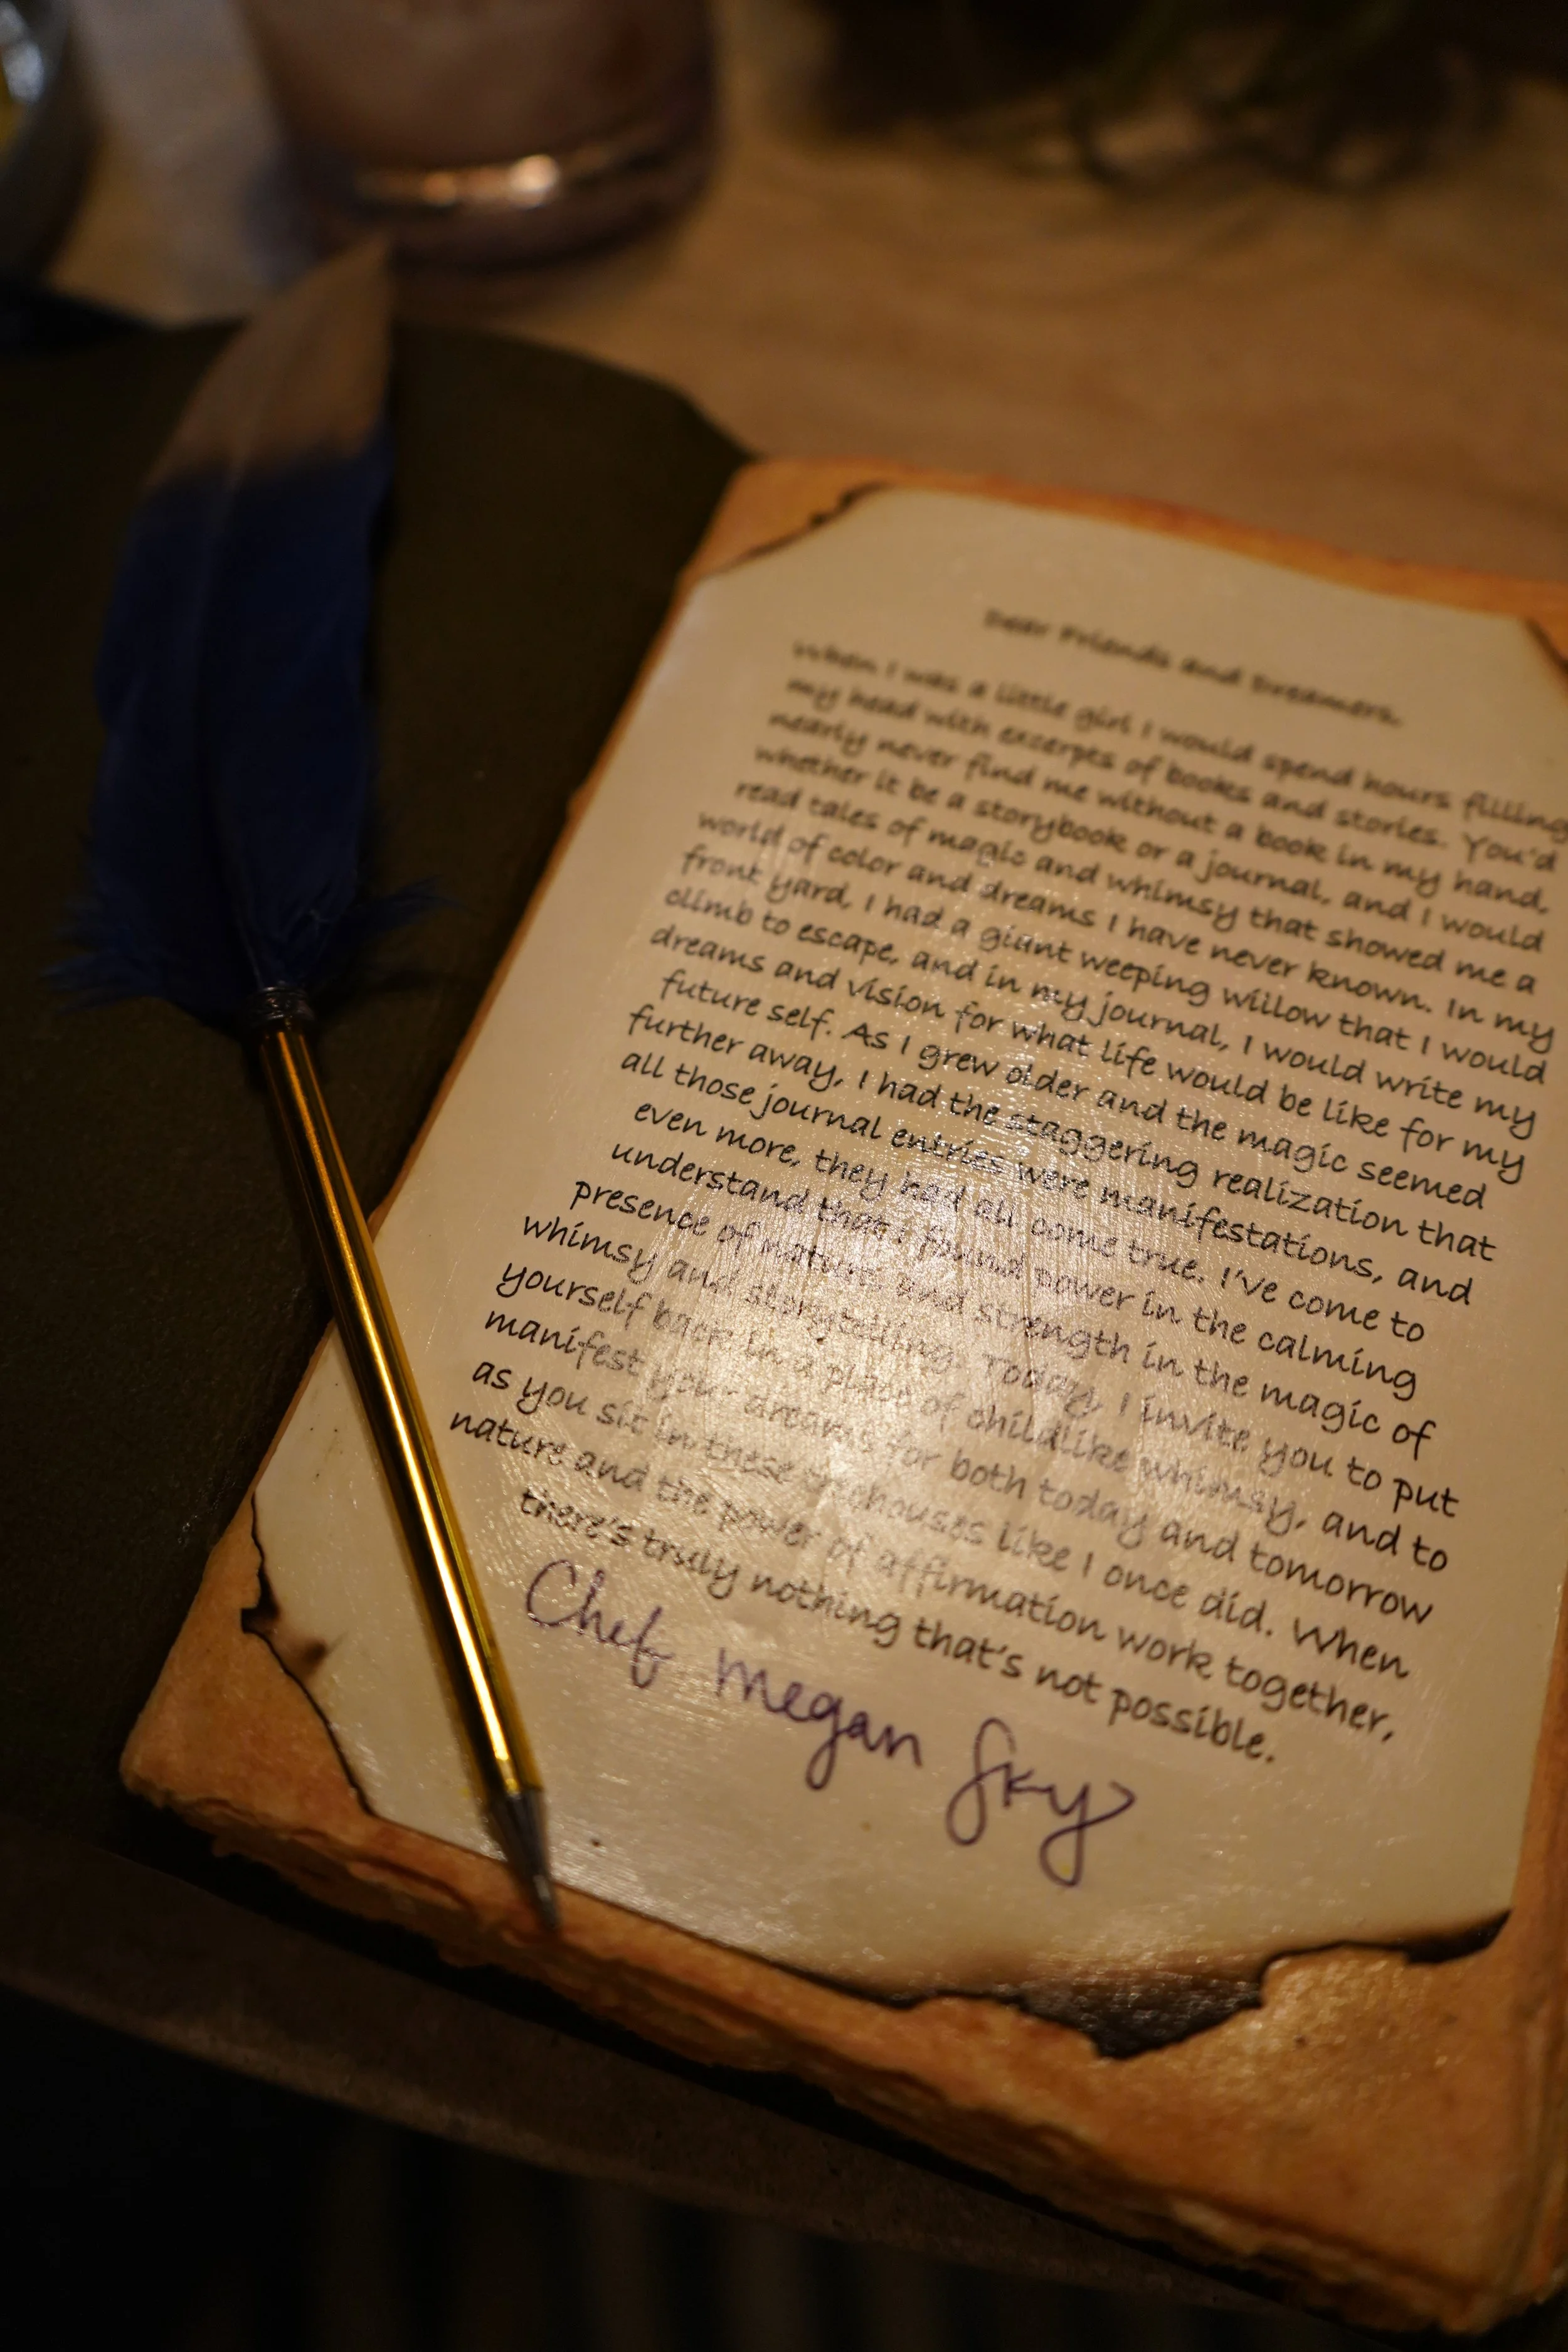 Dear Friends and Dreamers,
When I was a little girl I would spend hours filling
my head with excerpts of books and stories. You'd
nearly never find me without a book in my hand,
whether it be a storybook or a journal, and I would
read tales of magic and whimsy that showed me a
world of color and dreams I have never known. In my
front yard, I had a giant weeping willow that I would
climb to escape, and in my journal, I would write my
dreams and vision for what life would be like for my
future self. As I grew older and the magic seemed
further away, I had the staggering realization that
all those journal entries were manifestations, and
even more, they had all come true. I've come to
understand that I found power in the calming
presence of nature and strength in the magic of
whimsy and storytelling. Today, I invite you to put
yourself back in a place of childlike whimsy, and to
manifest your dreams for both today and tomorrow
as you sit in these treehouses like I once did. When
nature and the power of affirmation work together,
there's truly nothing that's not possible.
Chef Megan Sky